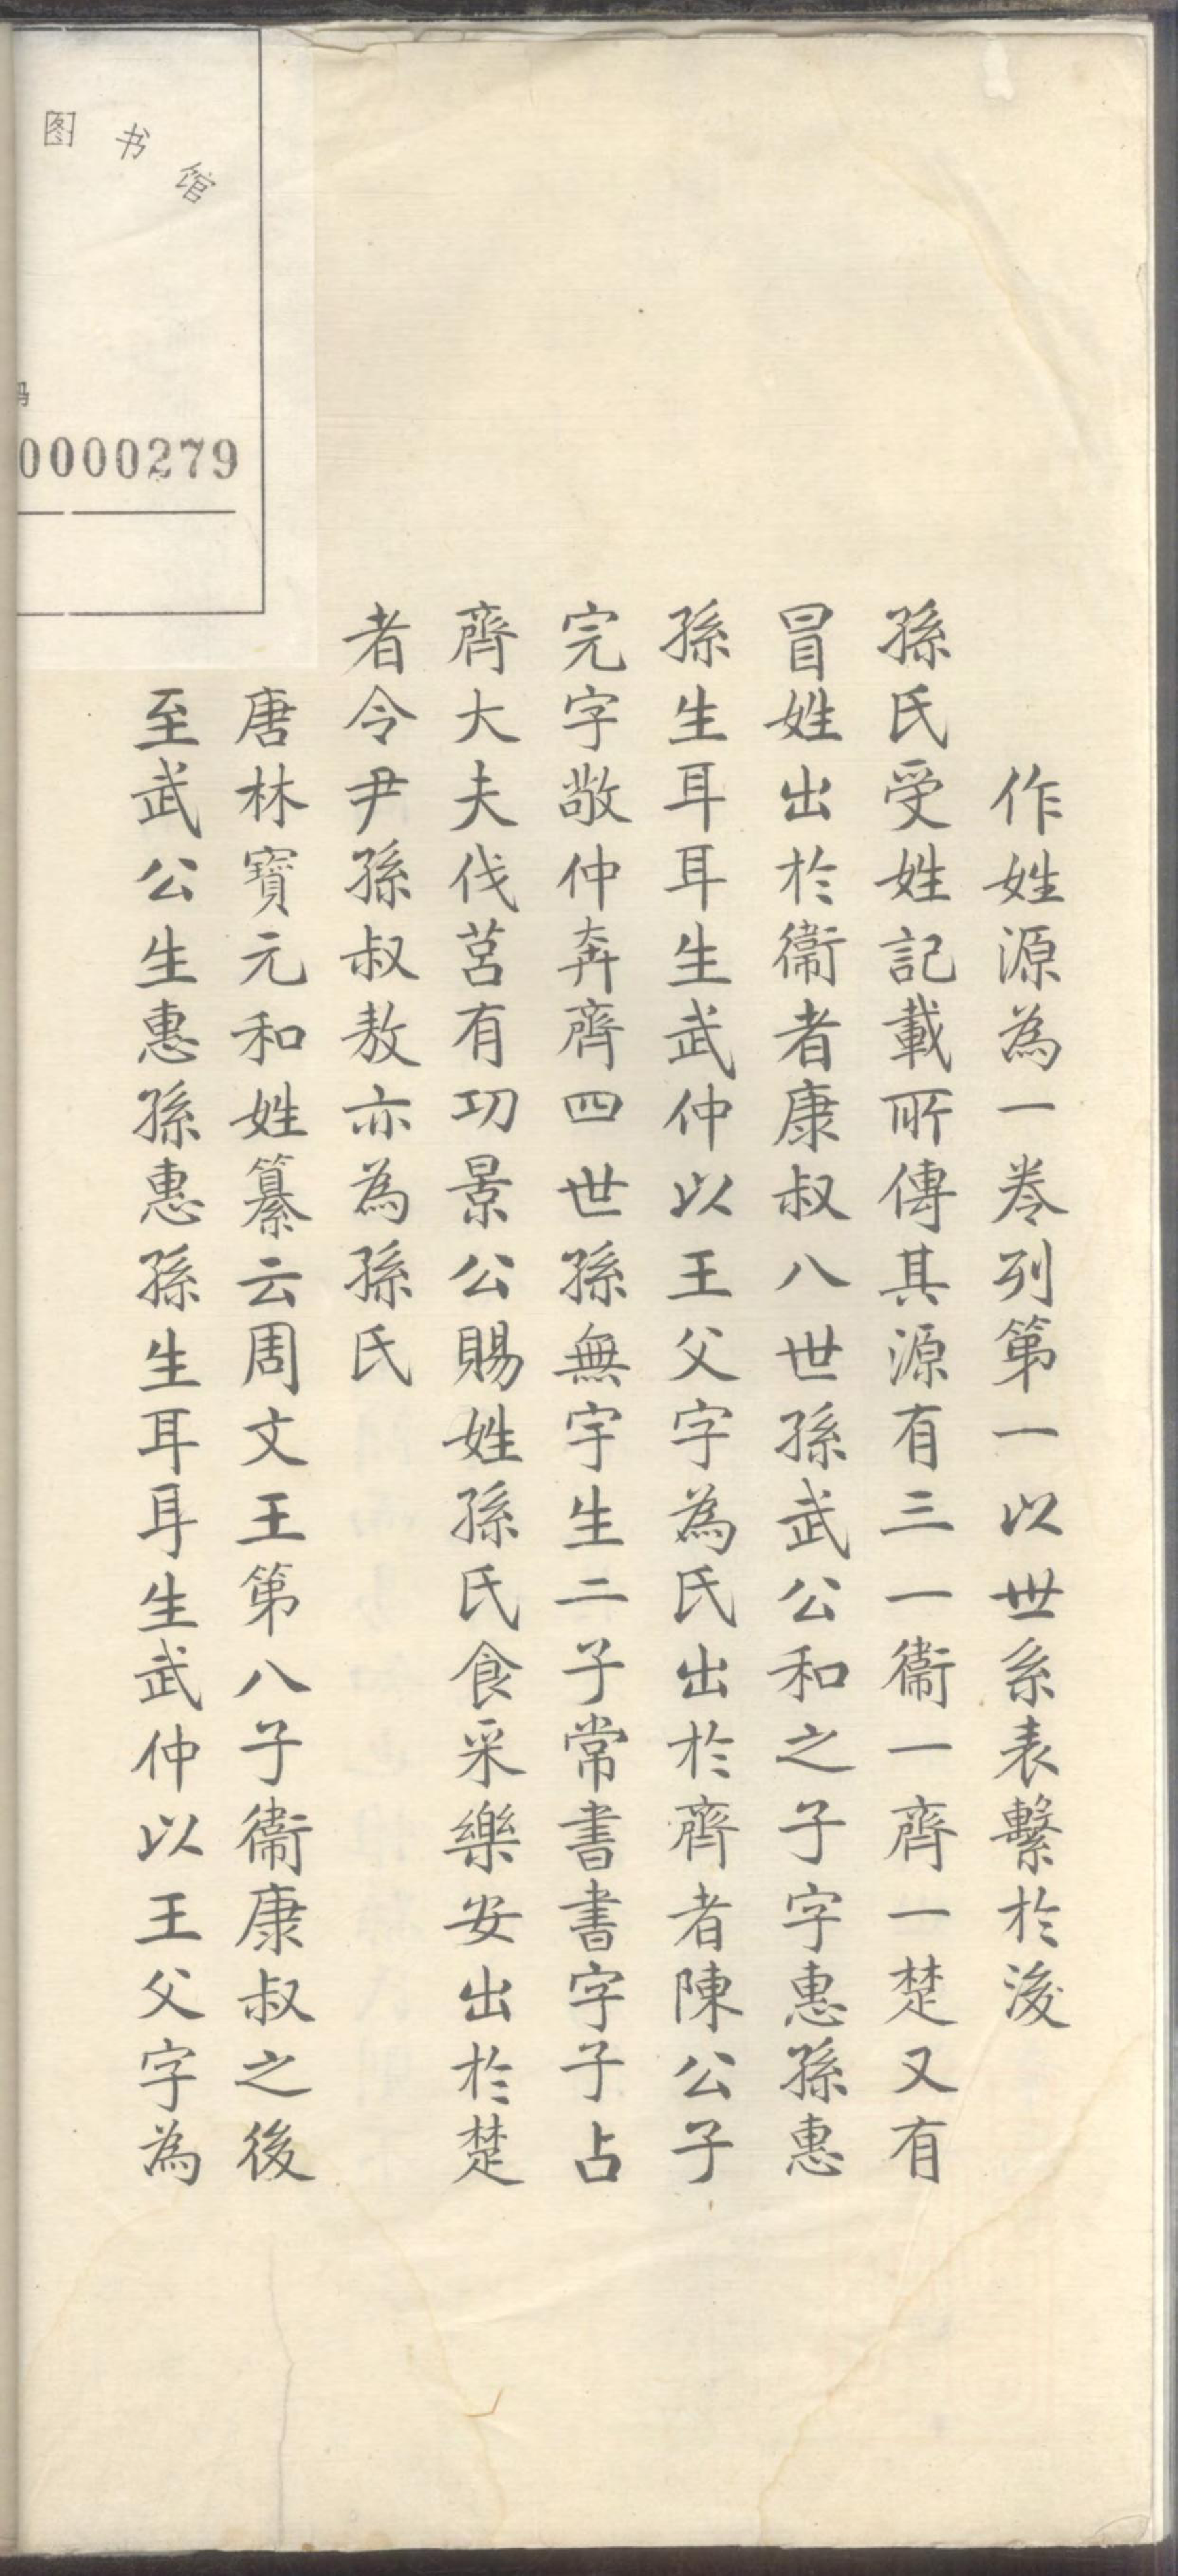 作姓源為一卷列第一以世系表繫於後
孫氏受姓記載所傳其源有三一衞一齊一楚又有
冒姓出於衞者康叔八世孫武公和之子字惠孫惠
孫生耳耳生武仲以王父字為氏出於齊者陳公子
完字敬仲奔齊四世孫無宇生二子常書書字子占
齊大夫伐莒有功景公賜姓孫氏食采樂安出於楚
者令尹孫叔敖亦為孫氏
唐林寶元和姓纂云周文王第八子衞康叔之後
至武公生惠孫惠孫生耳耳生武仲以王父字為
图书馆
0000279